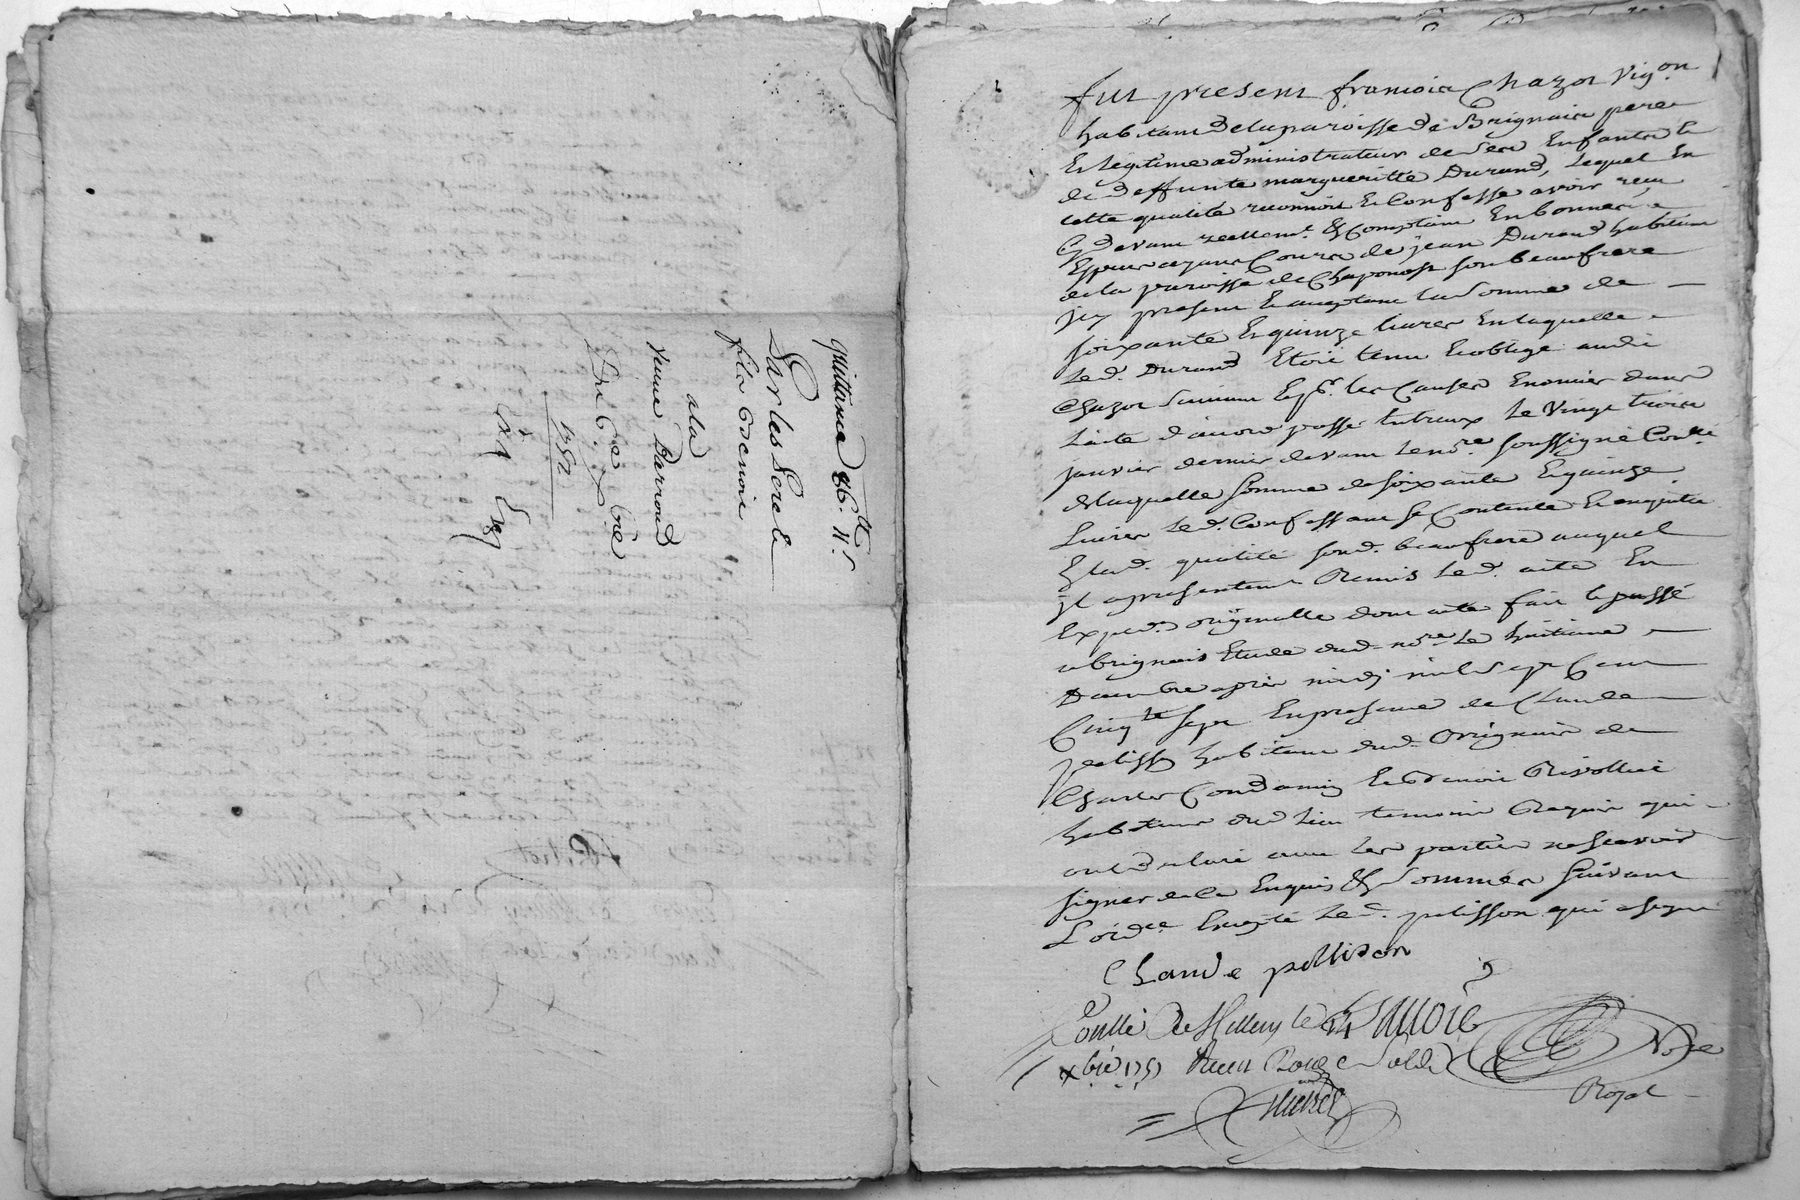 quittance 86.ᵗᵗ 11.ˢ
Par les Sere &
fils Benoit
a la
veuve Barroud
Du 6.e bre
1752
fut present francois Chazot Vig.on
habitant de la paroisse de Brignais pere
et legitime administrateur de ses Enfants &
de deffunte margueritte Durand, lequel En
cette qualité reconnoit et Confesse avoir reçu
cy devant reellem.t & Comptant En bonnes
Especes ayant Cours de jean Durand habitant
de la paroisse de Chaponost son beaufrere
icy present et acceptant la Somme de
soixante Et quinze livres En laquelle
led. Durand Etoit tenu et oblige audit
Chazot suivant & p.r les Causes Enoncées dans
L'acte d'accord passé Entreux le Vingt trois
janvier dernier devant le no.re soussigné Con.llé
de laquelle somme de soixante Et quinze
Livres led. Confessant se Contente et en quitte
Et lad. qualité sond. beaufrere auquel
il a presentement Remis led. acte En
Exped.on originalle dont acte fait & passé
a brignais Etude dud. no.re le huitieme
Decembre apres midy mil sept Cent
Cinq.te sept En presence de Claude
pelisson habitant dud. Brignais de
Charles Condamin et Benoit Rivollier
habitans dud. Lieu temoins Requis qui
ont declaré avec les parties ne scavoir
signer de ce Enquis & Sommés suivant
L'ord.ce Excepté led. pelisson qui a signé
Claude pellison
Conllé De Millery le 14
xbre 1757 Recu Douze Sols
No.re
Royal